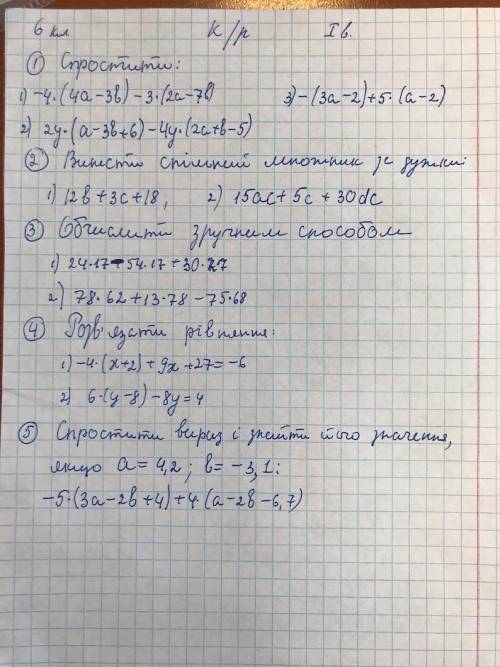 6 кл К/р І в.
① Спростити:
1) -4·(4a-3b)-3·(2a-7b) 3) -(3a-2)+5·(a-2)
2) 2y·(a-3b+6)-4y·(2a+b-5)
② Винести спільний множник за дужки:
1) 12b+3c+18, 2) 15ac+5c+30dc
③ Обчислити зручним способом
1) 24·17-54·17+30·27
2) 78·62+13·78-75·68
④ Розв'язати рівняння:
1) -4·(x+2)+9x+27=-6
2) 6·(y-8)-8y=4
⑤ Спростити вираз і знайти його значення,
якщо a=4,2; b=-3,1:
-5·(3a-2b+4)+4·(a-2b-6,7)